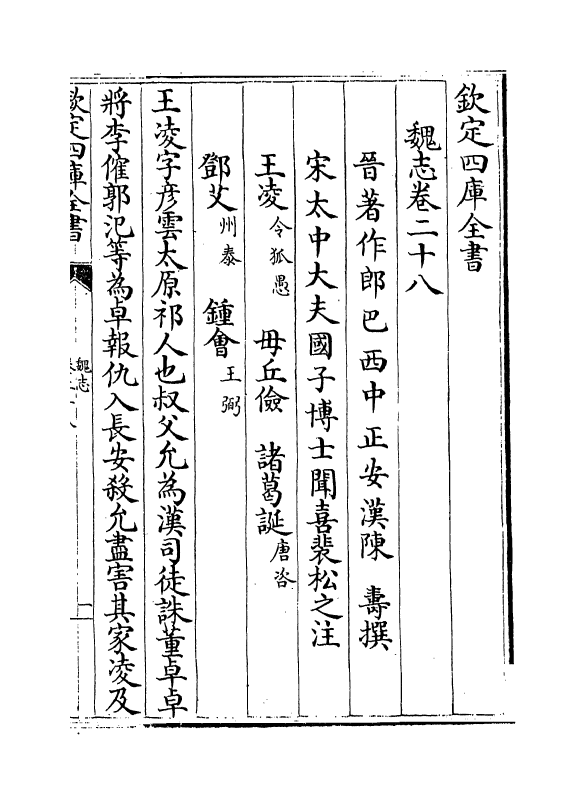 欽定四庫全書
魏志卷二十八
晉著作郎巴西中正安漢陳 壽撰
宋太中大夫國子博士聞喜裴松之注
王凌 令狐愚 毋丘儉 諸葛誕 唐咨
鄧艾 州泰 鍾會 王弼
王凌字彦雲太原祁人也叔父允為漢司徒誅董卓卓
將李傕郭汜等為卓報仇入長安殺允盡害其家凌及
欽定四庫全書
魏志
卷二十八
一